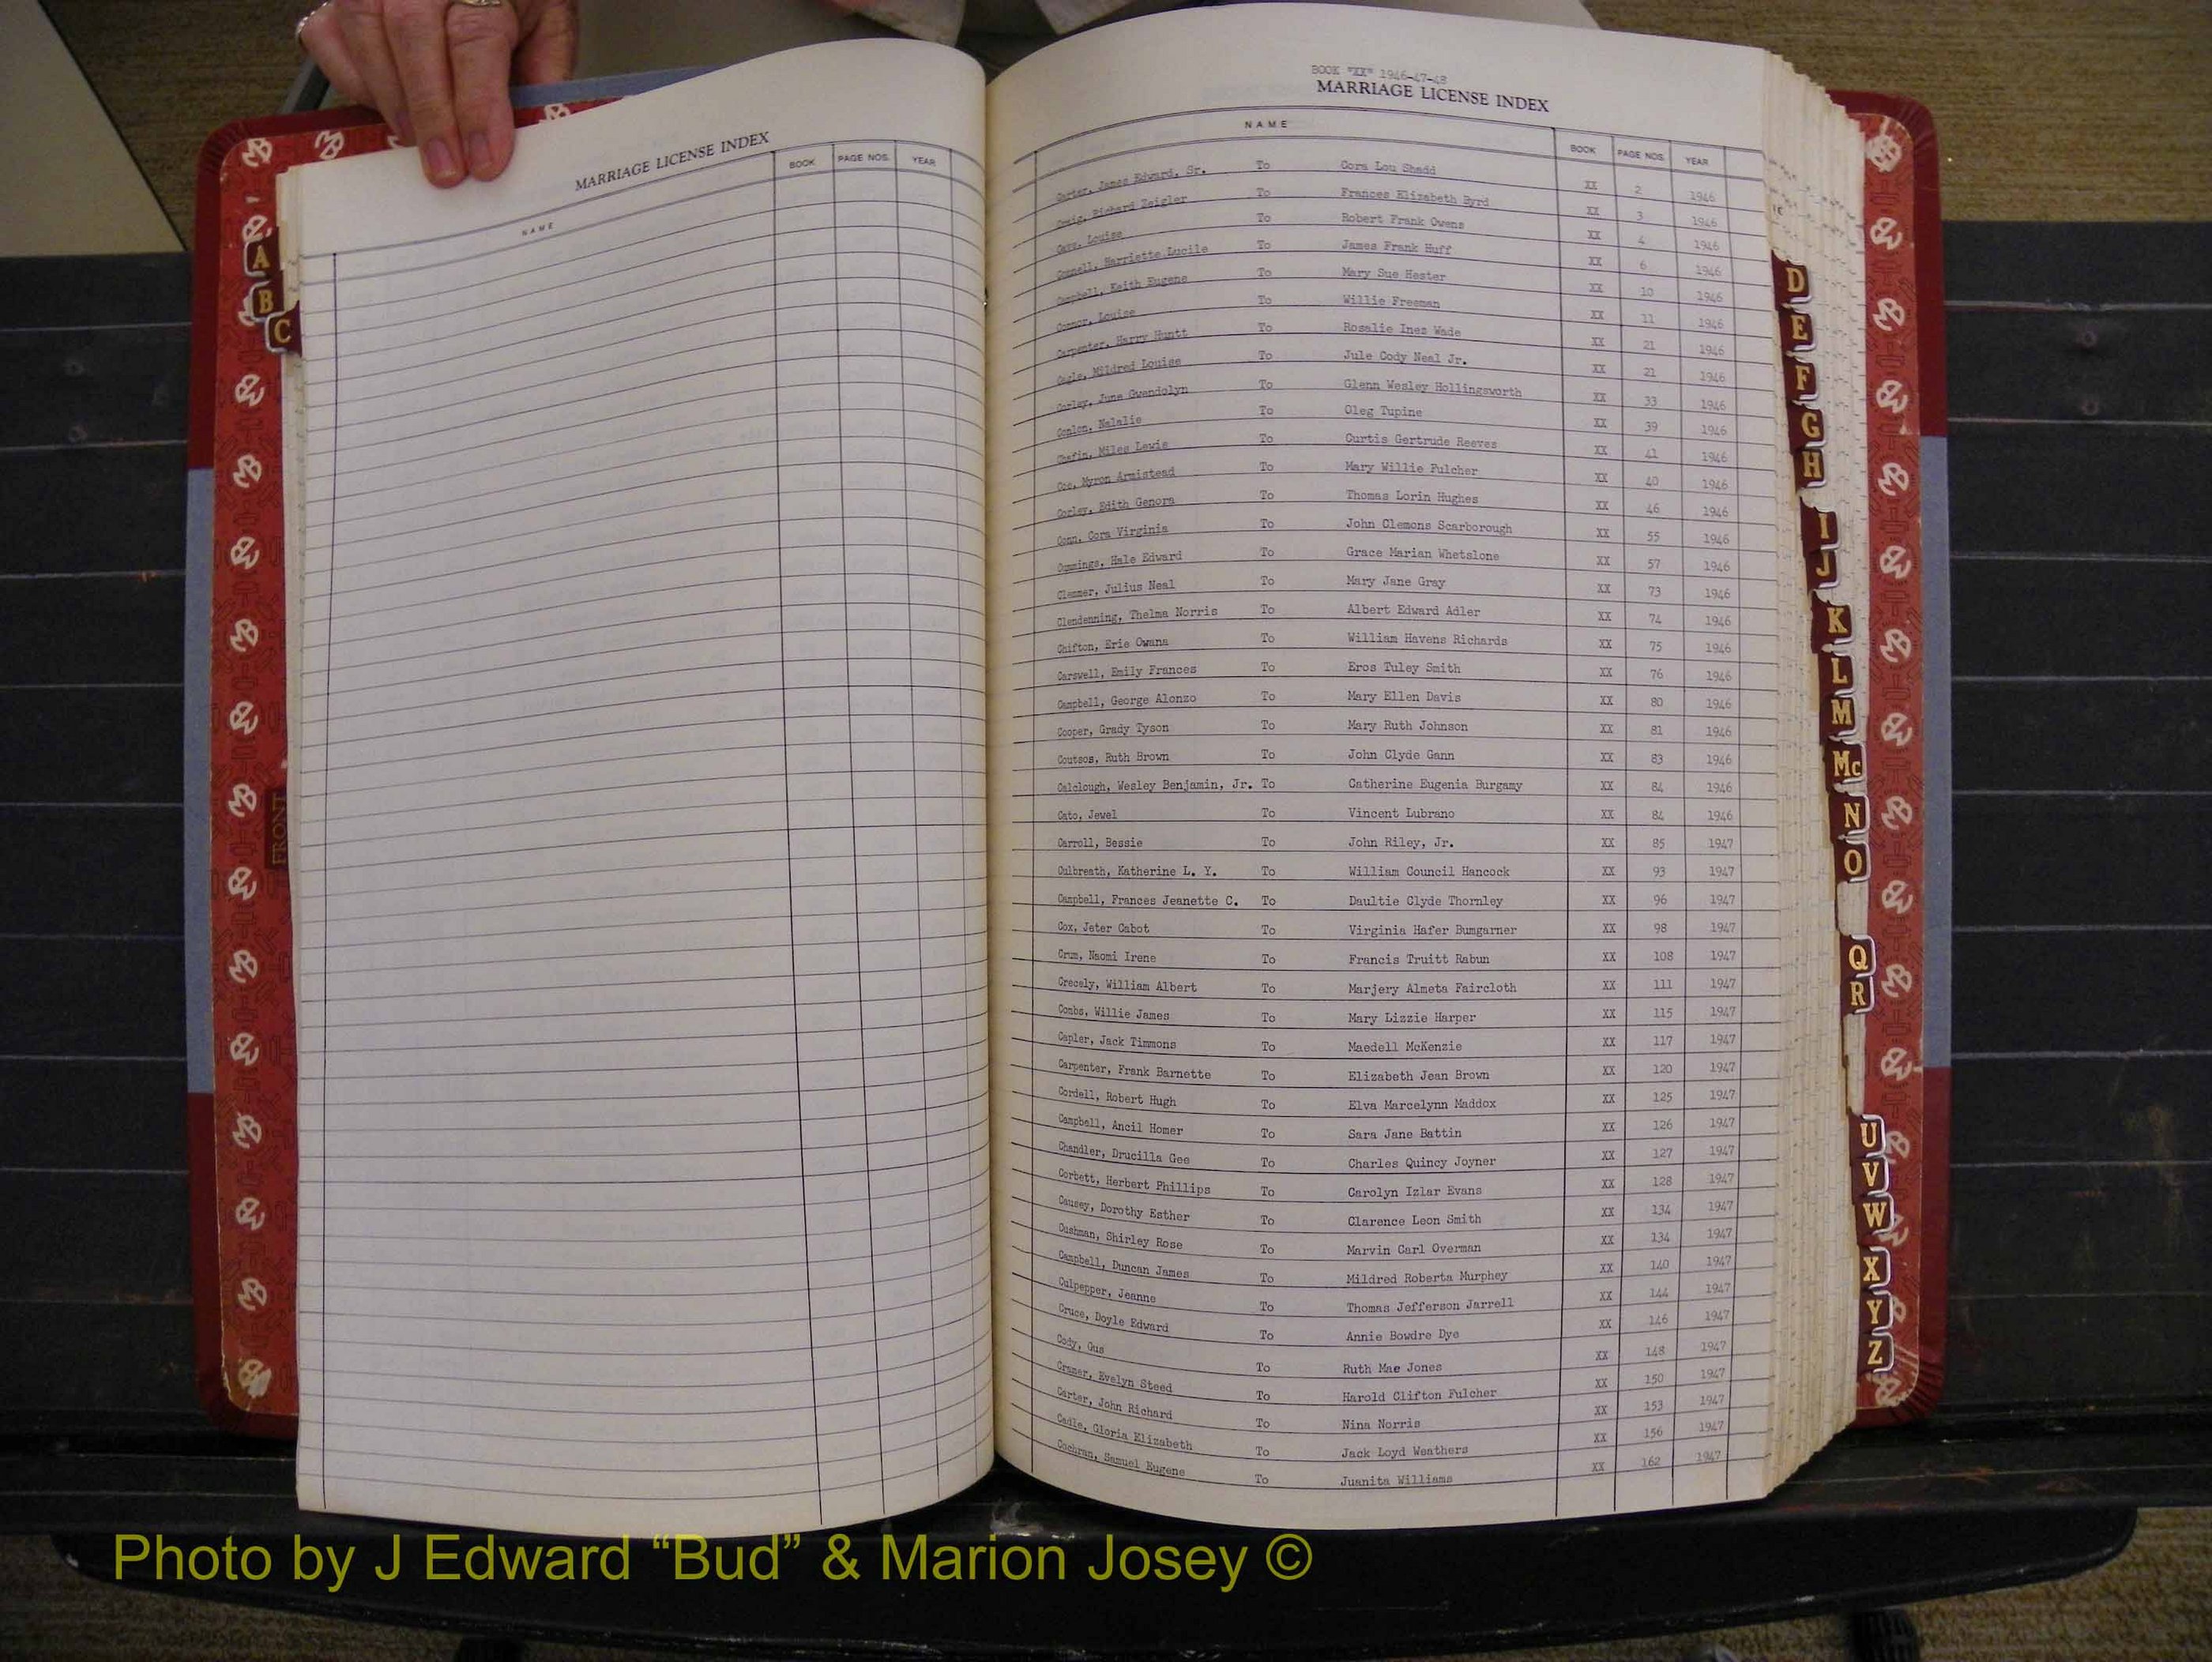 MARRIAGE LICENSE INDEX
NAME BOOK PAGE NOS. YEAR
A
B
C
FRONT
BOOK "XX" 1946-47-48
MARRIAGE LICENSE INDEX
NAME BOOK PAGE NOS. YEAR
Carter, James Edward, Sr. To Cora Lou Shadd XX 2 1946
Craig, Richard Zeigler To Frances Elizabeth Byrd XX 3 1946
Cave, Louise To Robert Frank Owens XX 4 1946
Connell, Harriette Lucile To James Frank Huff XX 6 1946
Campbell, Keith Eugene To Mary Sue Hester XX 10 1946
Connor, Louise To Willie Freeman XX 11 1946
Carpenter, Harry Huntt To Rosalie Inez Wade XX 21 1946
Cagle, Mildred Louise To Jule Cody Neal Jr. XX 21 1946
Corley, June Gwendolyn To Glenn Wesley Hollingsworth XX 33 1946
Conlon, Nalalie To Oleg Tupine XX 39 1946
Chafin, Miles Lewis To Curtis Gertrude Reeves XX 41 1946
Coe, Myron Armistead To Mary Willie Fulcher XX 40 1946
Corley, Edith Genora To Thomas Lorin Hughes XX 46 1946
Conn, Cora Virginia To John Clemons Scarborough XX 55 1946
Cummings, Hale Edward To Grace Marian Whetslone XX 57 1946
Clemmer, Julius Neal To Mary Jane Gray XX 73 1946
Clendenning, Thelma Norris To Albert Edward Adler XX 74 1946
Chifton, Erie Owana To William Havens Richards XX 75 1946
Carswell, Emily Frances To Eros Tuley Smith XX 76 1946
Campbell, George Alonzo To Mary Ellen Davis XX 80 1946
Cooper, Grady Tyson To Mary Ruth Johnson XX 81 1946
Coutsos, Ruth Brown To John Clyde Gann XX 83 1946
Calclough, Wesley Benjamin, Jr. To Catherine Eugenia Burgamy XX 84 1946
Cato, Jewel To Vincent Lubrano XX 84 1946
Carroll, Bessie To John Riley, Jr. XX 85 1947
Culbreath, Katherine L. Y. To William Council Hancock XX 93 1947
Campbell, Frances Jeanette C. To Daultie Clyde Thornley XX 96 1947
Cox, Jeter Cabot To Virginia Hafer Bumgarner XX 98 1947
Crum, Naomi Irene To Francis Truitt Rabun XX 108 1947
Crecely, William Albert To Marjery Almeta Faircloth XX 111 1947
Combs, Willie James To Mary Lizzie Harper XX 115 1947
Capler, Jack Timmons To Maedell McKenzie XX 117 1947
Carpenter, Frank Barnette To Elizabeth Jean Brown XX 120 1947
Cordell, Robert Hugh To Elva Marcelynn Maddox XX 125 1947
Campbell, Ancil Homer To Sara Jane Battin XX 126 1947
Chandler, Drucilla Gee To Charles Quincy Joyner XX 127 1947
Corbett, Herbert Phillips To Carolyn Izlar Evans XX 128 1947
Causey, Dorothy Esther To Clarence Leon Smith XX 134 1947
Cushman, Shirley Rose To Marvin Carl Overman XX 134 1947
Campbell, Duncan James To Mildred Roberta Murphey XX 140 1947
Culpepper, Jeanne To Thomas Jefferson Jarrell XX 144 1947
Cruce, Doyle Edward To Annie Bowdre Dye XX 146 1947
Cody, Gus To Ruth Mae Jones XX 148 1947
Cramer, Evelyn Steed To Harold Clifton Fulcher XX 150 1947
Carter, John Richard To Nina Norris XX 153 1947
Cadle, Gloria Elizabeth To Jack Loyd Weathers XX 156 1947
Cochran, Samuel Eugene To Juanita Williams XX 162 1947
D
E
F
G
H
I
J
K
L
M
Mc
N
O
Q
R
U
V
W
X
Y
Z
Photo by J Edward “Bud” & Marion Josey ©